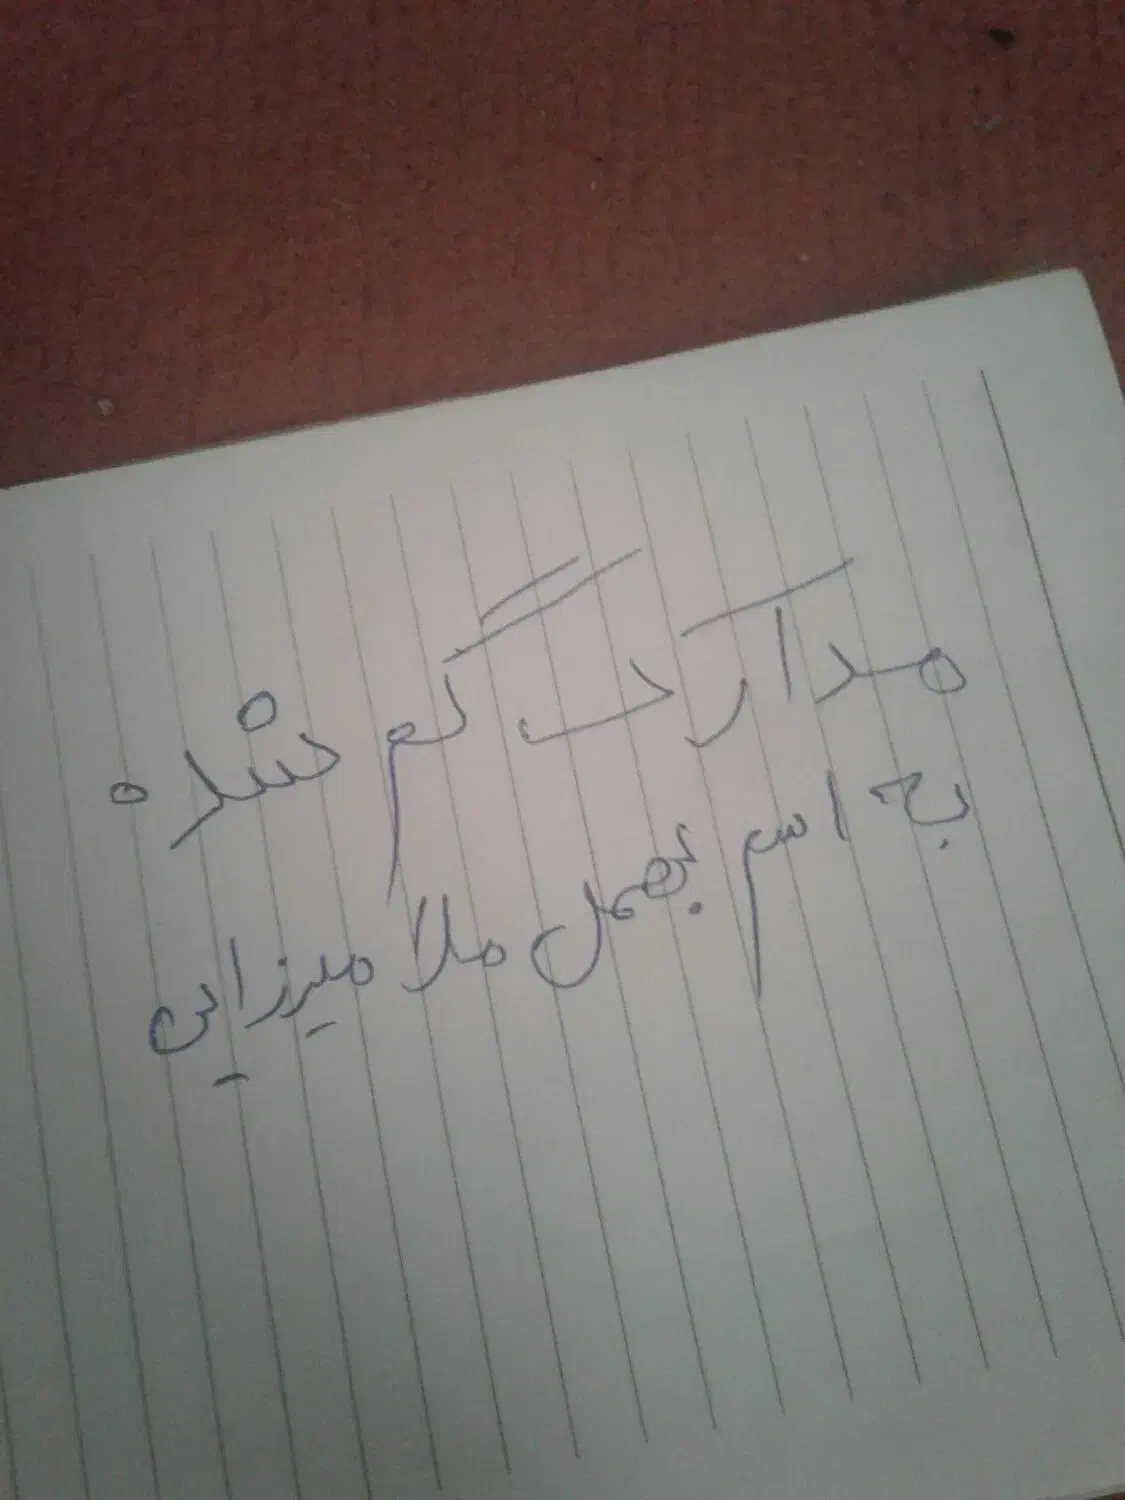 مدارک گم شده
به اسم بهمل ملا میرزایی